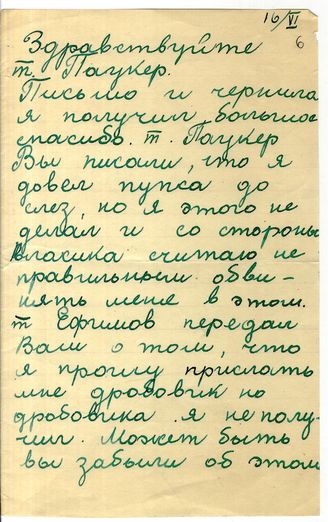 16/VI
6
Здравствуйте
т. Паукер.
Письмо и чернила
я получил, большое
спасибо. т. Паукер
Вы писали, что я
довел пупса до
слез, но я этого не
делал и со стороны
власика считаю не
правильным обви-
нять меня в этом.
т Ефимов передал
Вам о том, что
я прошу прислать
мне дробовик но
дробовика я не полу-
чил. Может быть
вы забыли об этом